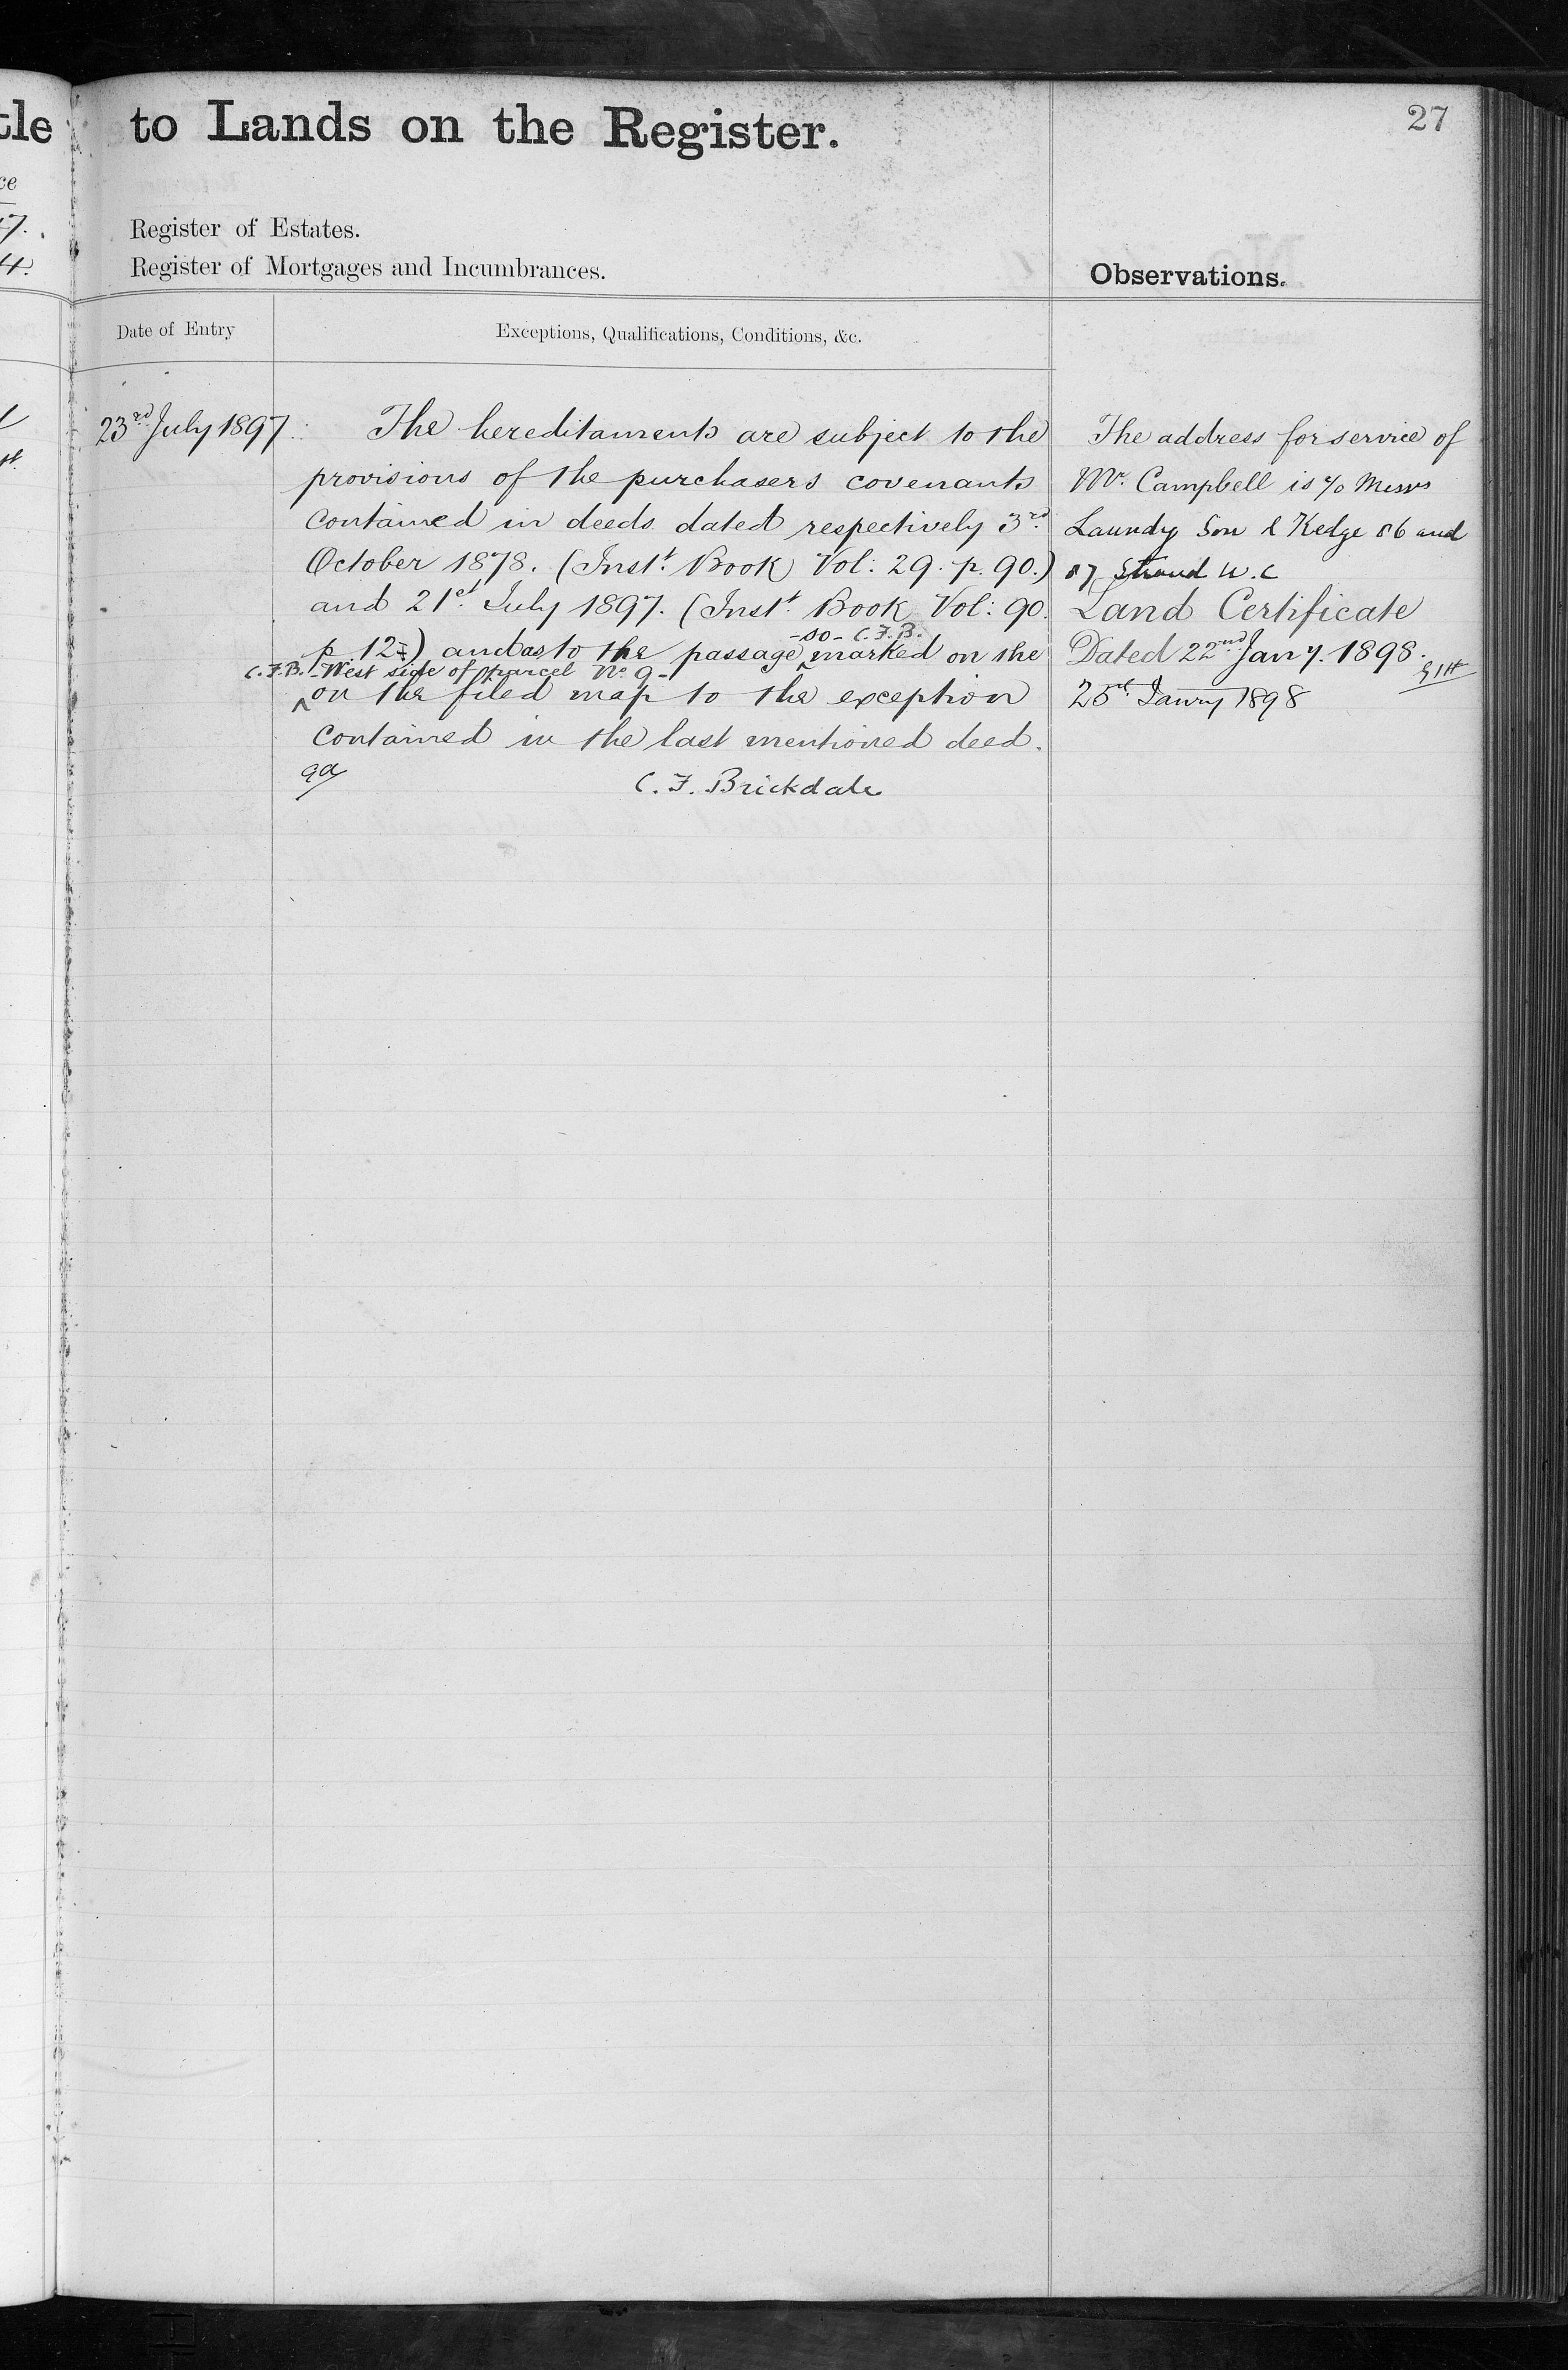 tle to Lands on the Register.
27
ce
Register of Estates.
Register of Mortgages and Incumbrances.
Observations.
Date of Entry
Exceptions, Qualifications, Conditions, &c.
23rd July 1897
The hereditaments are subject to the
provisions of the purchasers covenants
contained in deeds dated respectively 3rd
October 1878. (Inst. Book Vol: 29. p. 90.)
and 21st July 1897. (Inst. Book Vol: 90.
-so- C.F.B.
p 127) and as to the passage marked on the
C.F.B. -West side of parcel No 9-
on the filed map to the exception
contained in the last mentioned deed.
C. F. Brickdale
The address for service of
Mr. Campbell is c/o Messrs
Laundy Son & Kedge 86 and
87 Strand W.C
Land Certificate
Dated 22nd Jany. 1898.
25th Janry 1898